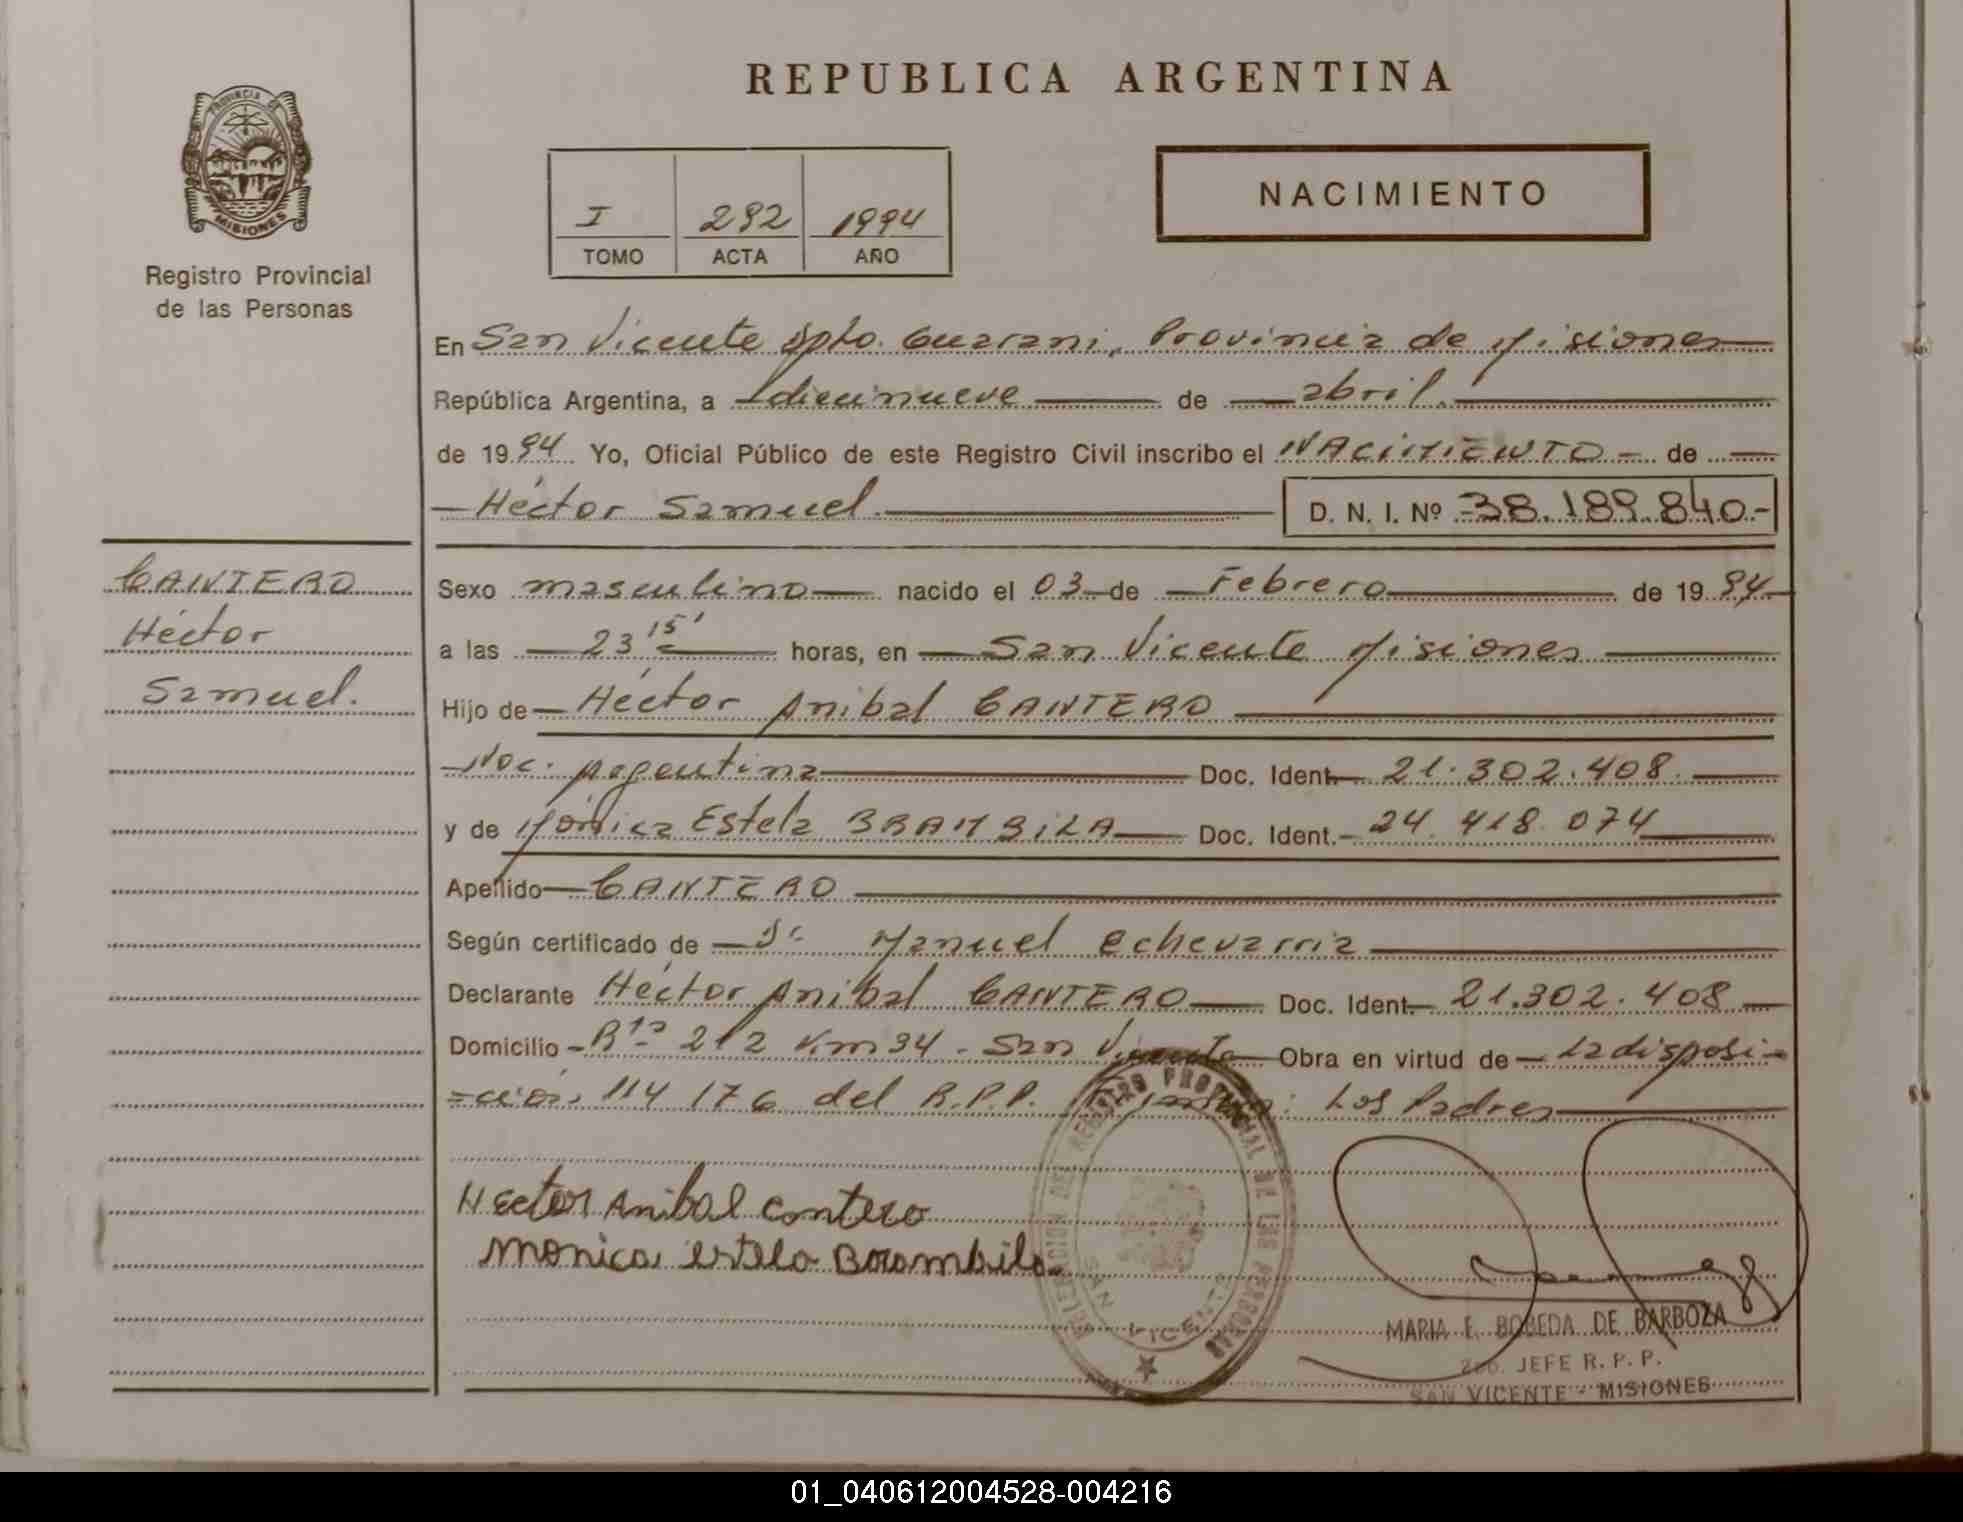 REPUBLICA ARGENTINA
PROVINCIA DE
MISIONES
Registro Provincial
de las Personas
I 292 1994
TOMO ACTA AÑO
NACIMIENTO
En San Vicente Dpto. Guarani, Provincia de Misiones
República Argentina, a diecinueve de abril.
de 1994 Yo, Oficial Público de este Registro Civil inscribo el NACIMIENTO de
Héctor Samuel. D. N. I. Nº 38.189.840.-
CANTERO
Héctor
Samuel.
Sexo masculino nacido el 03 de Febrero de 1994
a las 23 15' horas, en San Vicente Misiones
Hijo de Héctor Anibal CANTERO
Nac. Argentina Doc. Ident. 21.302.408.
y de Mónica Estela BRAMBILA Doc. Ident. 24.418.074
Apellido CANTERO
Según certificado de Dr. Manuel Echevarria
Declarante Héctor Anibal CANTERO Doc. Ident. 21.302.408
Domicilio Rta 212 Km 94 - San Vicente Obra en virtud de La disposi-
=ción 114 176 del R.P.P. : Los Padres
Hector Anibal Contero
Monica estela Borambila
DELEGACION DEL REGISTRO PROVINCIAL DE LAS PERSONAS
SAN VICENTE
MARIA E. BOBEDA DE BARBOZA
2do. JEFE R. P. P.
SAN VICENTE - MISIONES
01_040612004528-004216